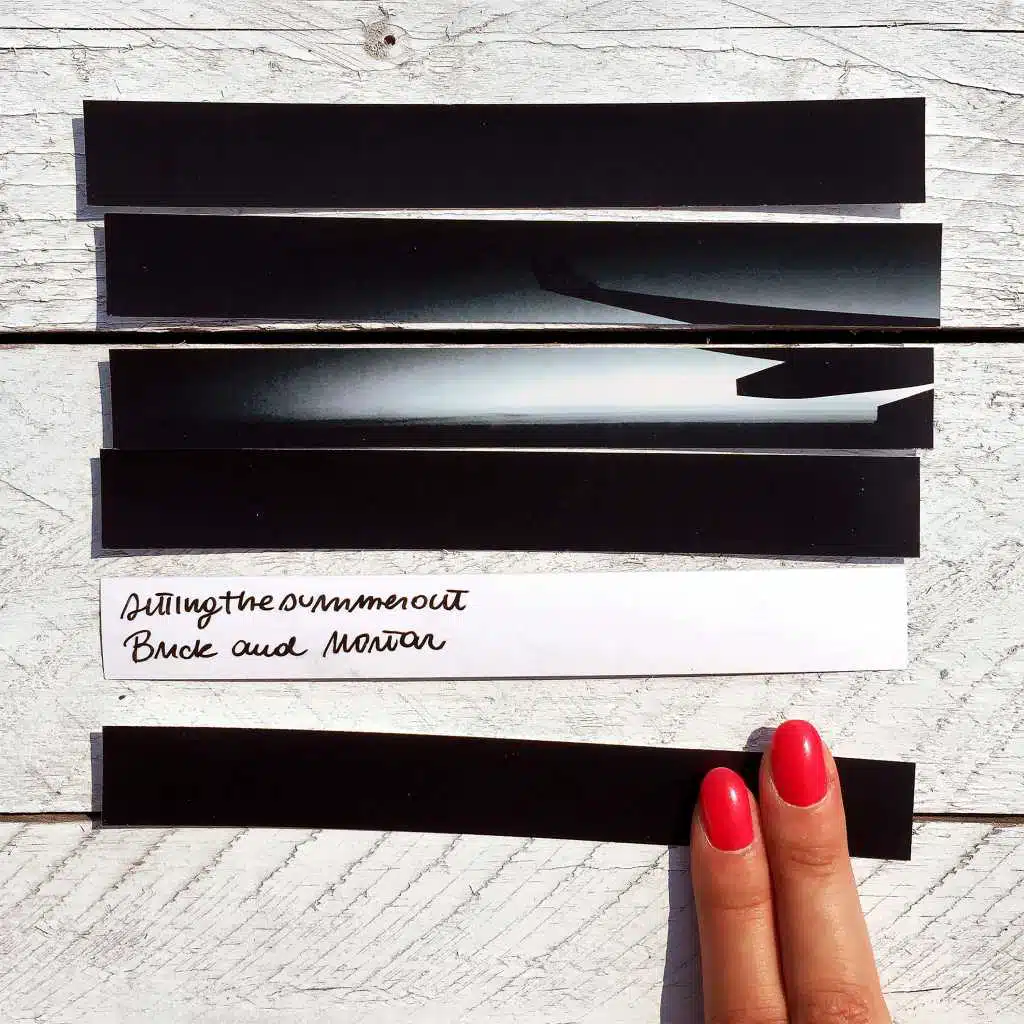 sitting the summer out
Brick and Mortar